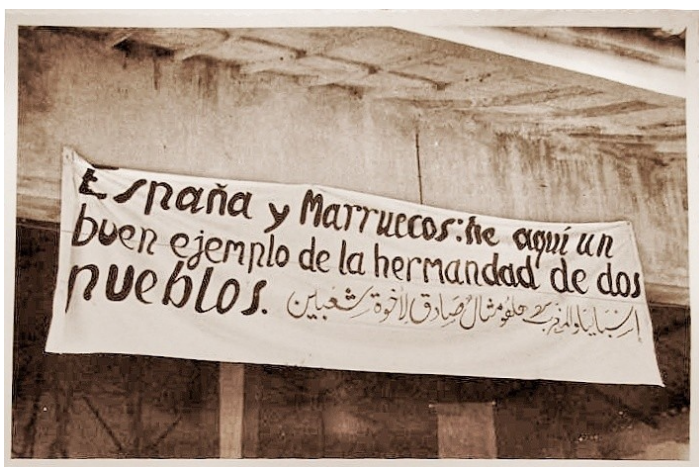 España y Marruecos: he aquí un
buen ejemplo de la hermandad de dos
pueblos.
إسبانيا والمغرب خلقو مثال صَادق لِأخوة شعبين